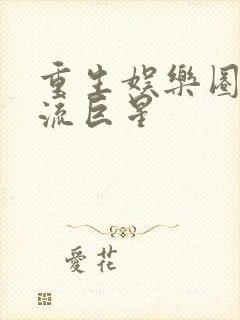 重生娛樂圈
流巨星
愛花